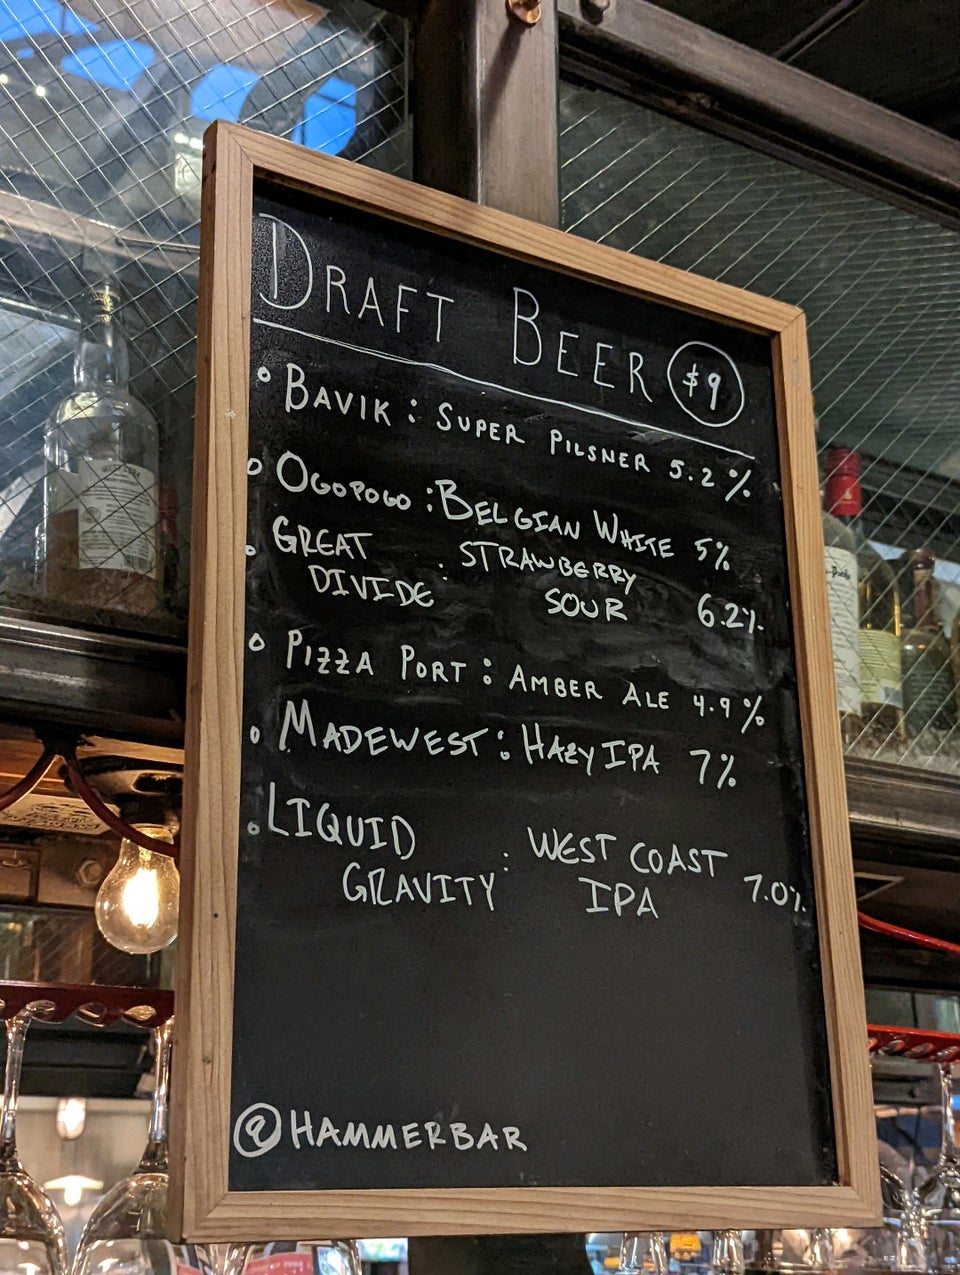 DRAFT BEER $9
BAVIK: SUPER PILSNER 5.2%
OGOPOGO: BELGIAN WHITE 5%
GREAT DIVIDE: STRAWBERRY SOUR 6.2%
PIZZA PORT: AMBER ALE 4.9%
MADEWEST: HAZY IPA 7%
LIQUID GRAVITY: WEST COAST IPA 7.0%
@HAMMERBAR